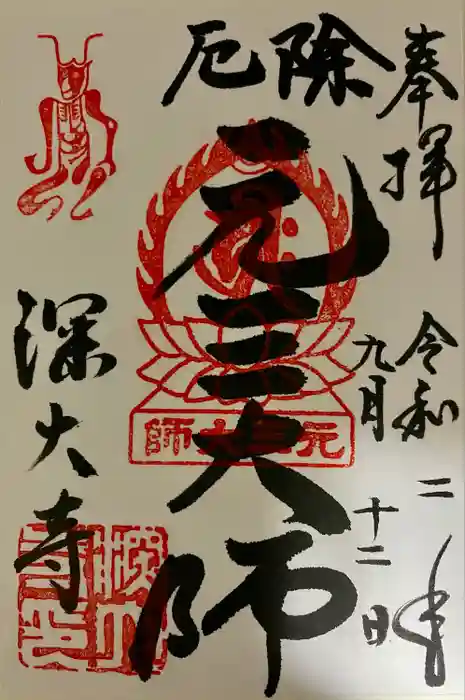 奉拝
令和二年
九月十二日
除厄
元三大師
元三大師
深大寺